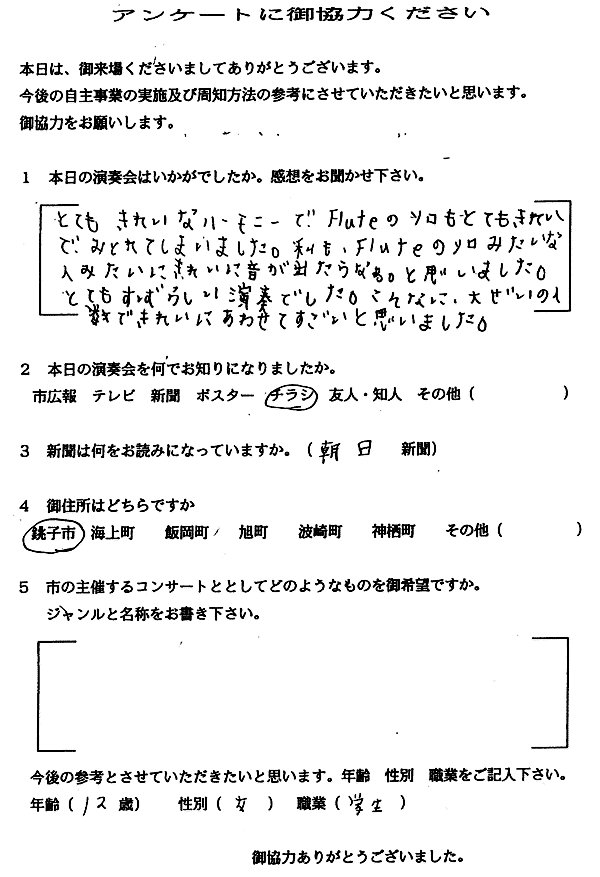 アンケートに御協力ください
本日は、御来場くださいましてありがとうございます。
今後の自主事業の実施及び周知方法の参考にさせていただきたいと思います。
御協力をお願いします。
1 本日の演奏会はいかがでしたか。感想をお聞かせ下さい。
とても きれいなハーモニーで、Fluteのソロもとてもきれい
で、みとれてしまいました。私も、Fluteのソロみたいな
人みたいにきれいに音が出たらなぁ。と思いました。
とてもすばらしい演奏でした。こんなに、大ぜいの人
数できれいにあわせてすごいと思いました。
2 本日の演奏会を何でお知りになりましたか。
市広報 テレビ 新聞 ポスター チラシ 友人・知人 その他（ ）
3 新聞は何をお読みになっていますか。（朝日 新聞）
4 御住所はどちらですか
銚子市 海上町 飯岡町 旭町 波崎町 神栖町 その他（ ）
5 市の主催するコンサートととしてどのようなものを御希望ですか。
ジャンルと名称をお書き下さい。
今後の参考とさせていただきたいと思います。年齢 性別 職業をご記入下さい。
年齢（12歳） 性別（女 ） 職業（学生 ）
御協力ありがとうございました。